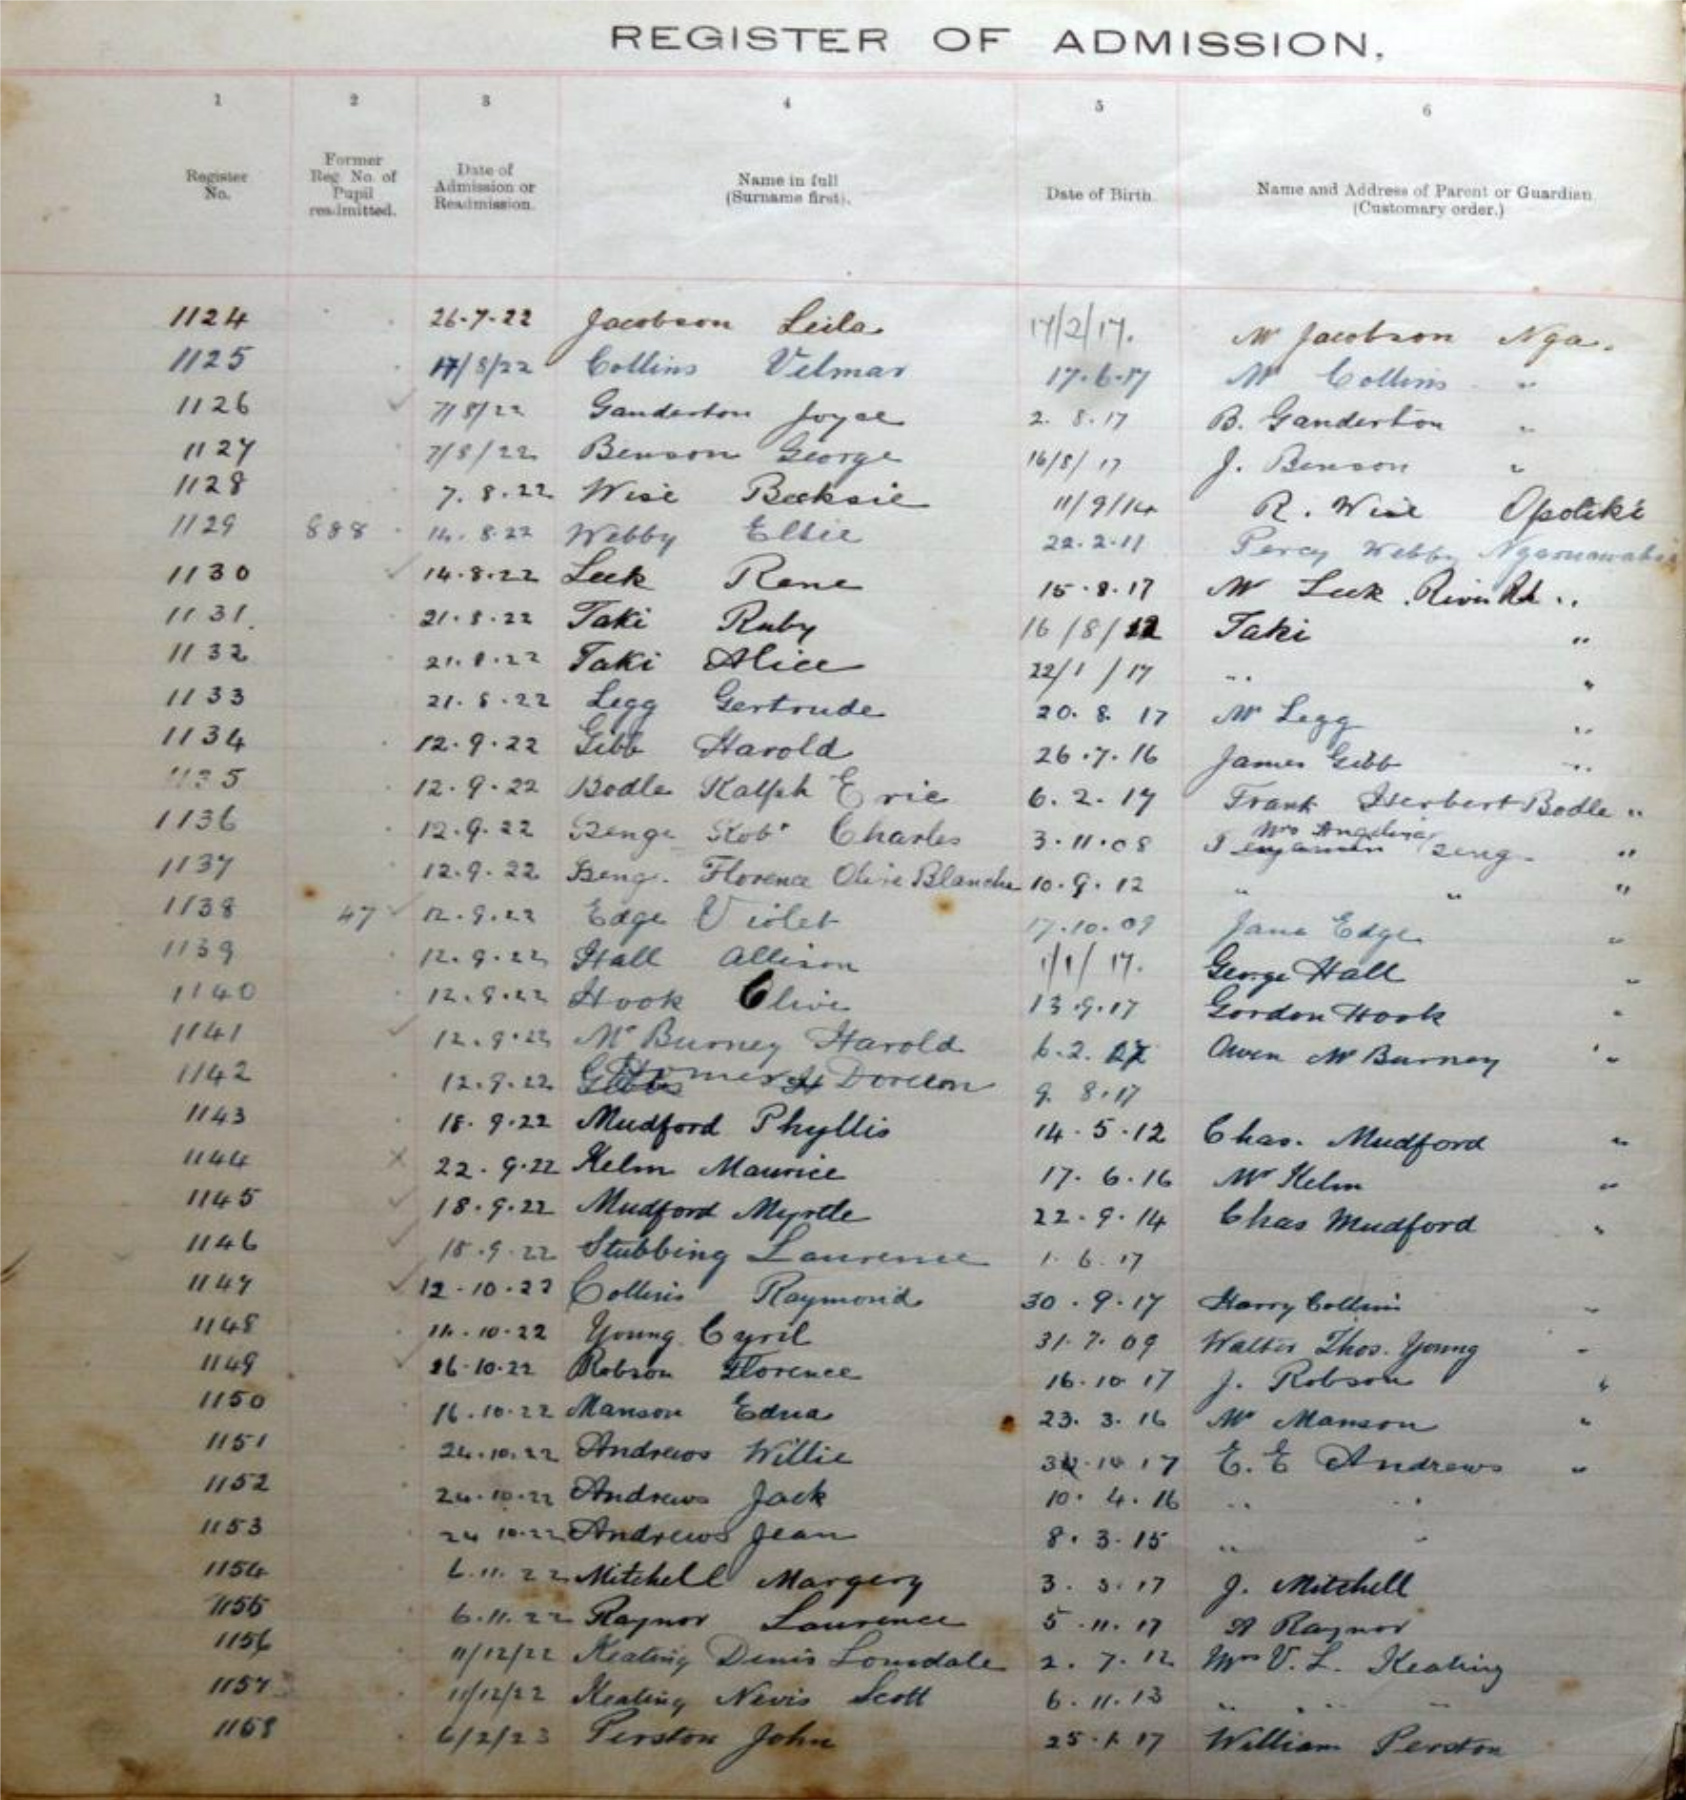 REGISTER OF ADMISSION.
1 2 3 4 5 6
Register No. Former Reg. No. of Pupil readmitted. Date of Admission or Readmission. Name in full (Surname first). Date of Birth Name and Address of Parent or Guardian (Customary order.)
1124 26.7.22 Jacobson Leila 17/2/17. Mr Jacobson Nga.
1125 17/8/22 Collins Velmar 17.6.17 Mr Collins "
1126 ✓ 7/8/22 Ganderton Joyce 2.8.17 B. Ganderton "
1127 7/8/22 Benson George 16/8/17 J. Benson "
1128 7.8.22 Wise Beeksie 11/9/14 R. Wise Opotiki
1129 888 14.8.22 Webby Elsie 22.2.11 Percy Webby Ngaruawahia
1130 ✓ 14.8.22 Leek Rene 15.8.17 Mr Leek River Rd "
1131. 21.8.22 Taki Ruby 16/8/12 Taki "
1132 21.8.22 Taki Alice 22/1/17 " "
1133 21.8.22 Legg Gertrude 20.8.17 Mr Legg "
1134 12.9.22 Gibb Harold 26.7.16 James Gibb "
1135 12.9.22 Bodle Ralph Eric 6.2.17 Frank Herbert Bodle "
1136 12.9.22 Benge Robt Charles 3.11.08 Mrs Angelina Benge "
1137 12.9.22 Benge Florence Olive Blanche 10.9.12 " " "
1138 47 ✓ 12.9.22 Edge Violet 17.10.09 Jane Edge "
1139 12.9.22 Hall Allison 1/1/17. George Hall "
1140 12.9.22 Hook Clive 13.9.17 Gordon Hook "
1141 ✓ 12.9.22 McBurney Harold 6.2. Owen McBurney "
1142 12.9.22 Doreen 9.8.17
1143 18.9.22 Mudford Phyllis 14.5.12 Chas. Mudford "
1144 x 22.9.22 Kelm Maurice 17.6.16 Mr Kelm "
1145 ✓ 18.9.22 Mudford Myrtle 22.9.14 Chas Mudford "
1146 ✓ 18.9.22 Stubbing Laurence 1.6.17
1147 ✓ 12.10.22 Collins Raymond 30.9.17 Harry Collins "
1148 16.10.22 Young Cyril 31.7.09 Walter Thos. Young "
1149 ✓ 16.10.22 Robson Florence 16.10.17 J. Robson "
1150 16.10.22 Manson Edna 23.3.16 Mr Manson "
1151 24.10.22 Andrews Willie 10.17 E. E Andrews "
1152 24.10.22 Andrews Jack 10.4.16 " "
1153 24.10.22 Andrews Jean 8.3.15 " "
1154 6.11.22 Mitchell Margery 3.3.17 J. Mitchell
1155 6.11.22 Raynor Laurence 5.11.17 A Raynor
1156 11/12/22 Keating Denis Lonsdale 2.7.12 Mrs V. L. Keating
1157 11/12/22 Keating Nevis Scott 6.11.13 " " "
1158 6/2/23 Perston John 25.1.17 William Perston